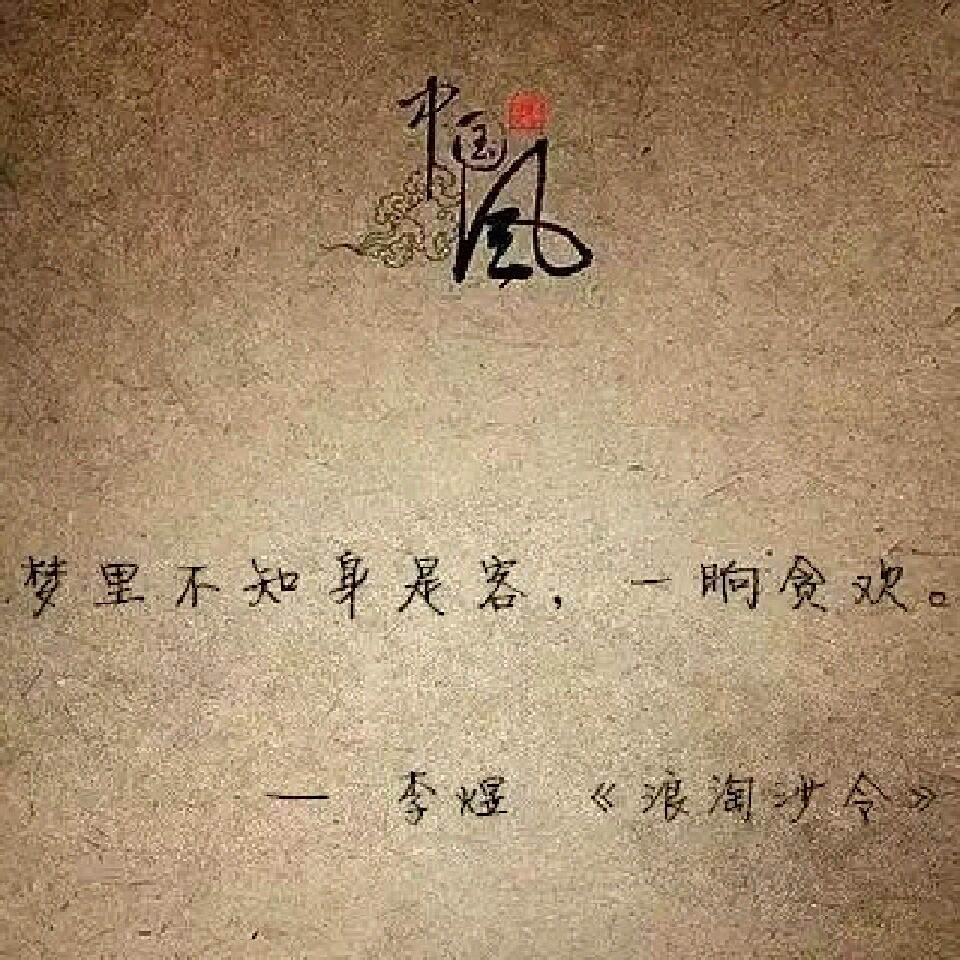 中国风
梦里不知身是客，一晌贪欢。
— 李煜 《浪淘沙令》